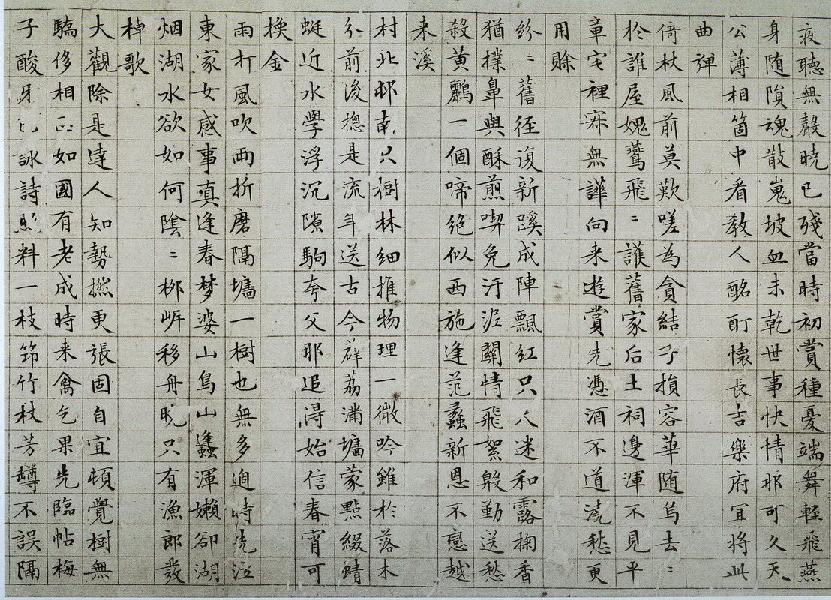 疲聽無聲曉已殘當時初賞種憂端舞輕飛燕
身隨隕魂散嵬坡血未乾世事快情那可久天
公薄相箇中看教人酩酊懷長吉樂府宜將此
曲彈
倚杖風前莫歎嗟為貪結子損容華隨烏去〻
於誰屋媿鶯飛〻護舊家后土祠邊渾不見平
章宅裡寂無譁向来遊賞先憑酒不道澆愁更
用賒
紛〻舊徑復新蹊成陣飄紅只尺迷和露掬香
猶撲鼻與酥煎喫免汙泥關情飛絮殷勤送愁
殺黃鸝一個啼絕似西施逢范蠡新恩不戀越
来溪
村北邨南只樹林細推物理一微吟雖於落木
分前後摠是流年送古今群荔滿墻蒙點綴蜻
蜓近水學浮沉隙駒夸父那追得始信春宵可
換金
雨打風吹兩折磨隔墻一樹也無多過時
東家女感事真逢春梦婆山鳥山蠭渾嬾卻湖
烟湖水欲如何陰〻栁岍移舟晚只有漁郎發
棹歌
大觀除是達人知勢更張固自宜頓覺樹無
驕侈相正如國有老成時来禽乞果先臨帖梅
子酸牙已詠詩料一枝筇竹杖芳罇不誤隔